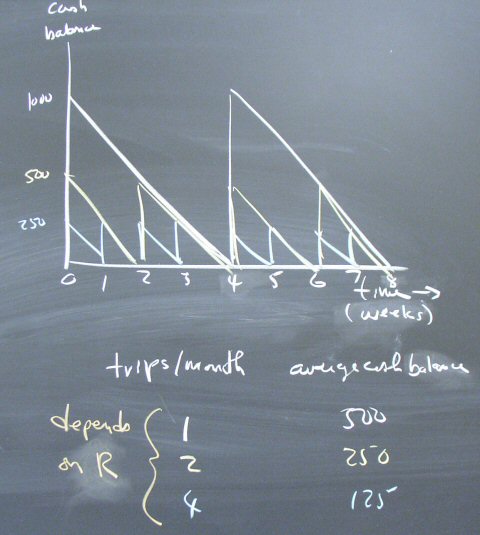 cash
balance
1000
500
250
0 1 2 3 4 5 6 7 8
time →
(weeks)
trips/month average cash balance
depends 1 500
on R 2 250
4 125